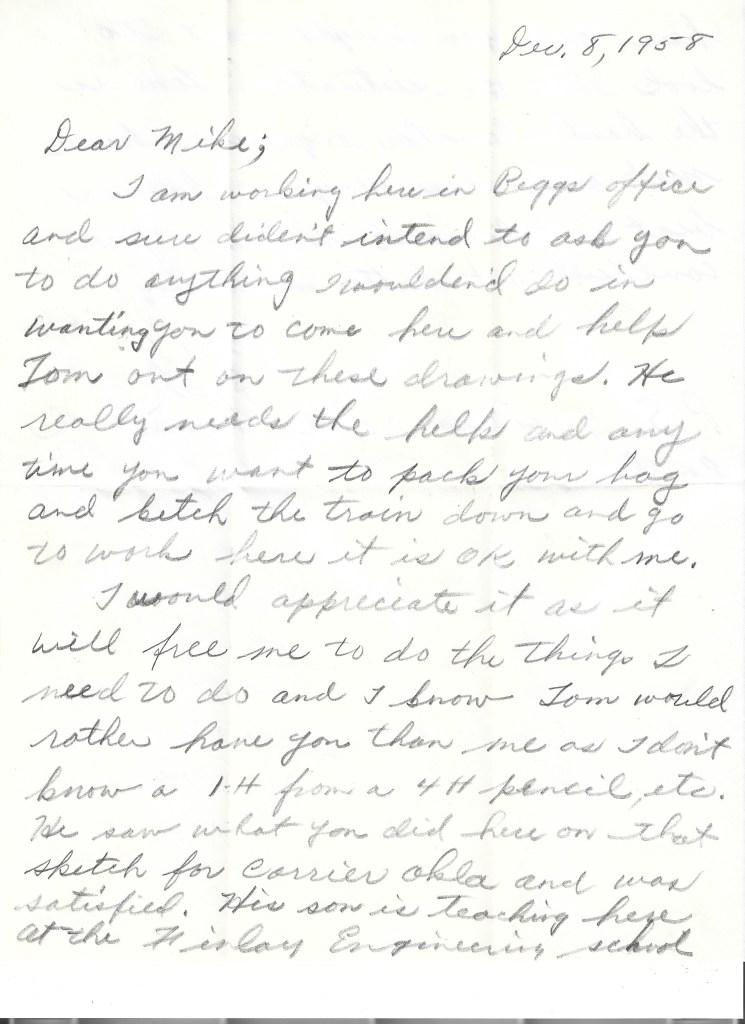 Dec. 8, 1958
Dear Mike;
I am working here in Peggs office
and sure diden't intend to ask you
to do anything I woulden'd do in
wanting you to come here and help
Tom out on these drawings. He
really needs the help and any
time you want to pack your bag
and ketch the train down and go
to work here it is OK with me.
I would appreciate it as it
will free me to do the things I
need to do and I know Tom would
rather have you than me as I don't
know a 1-H from a 4H pencil, etc.
He saw what you did here on that
sketch for Carrier Okla and was
satisfied. His son is teaching here
at the Finlay Engineering school